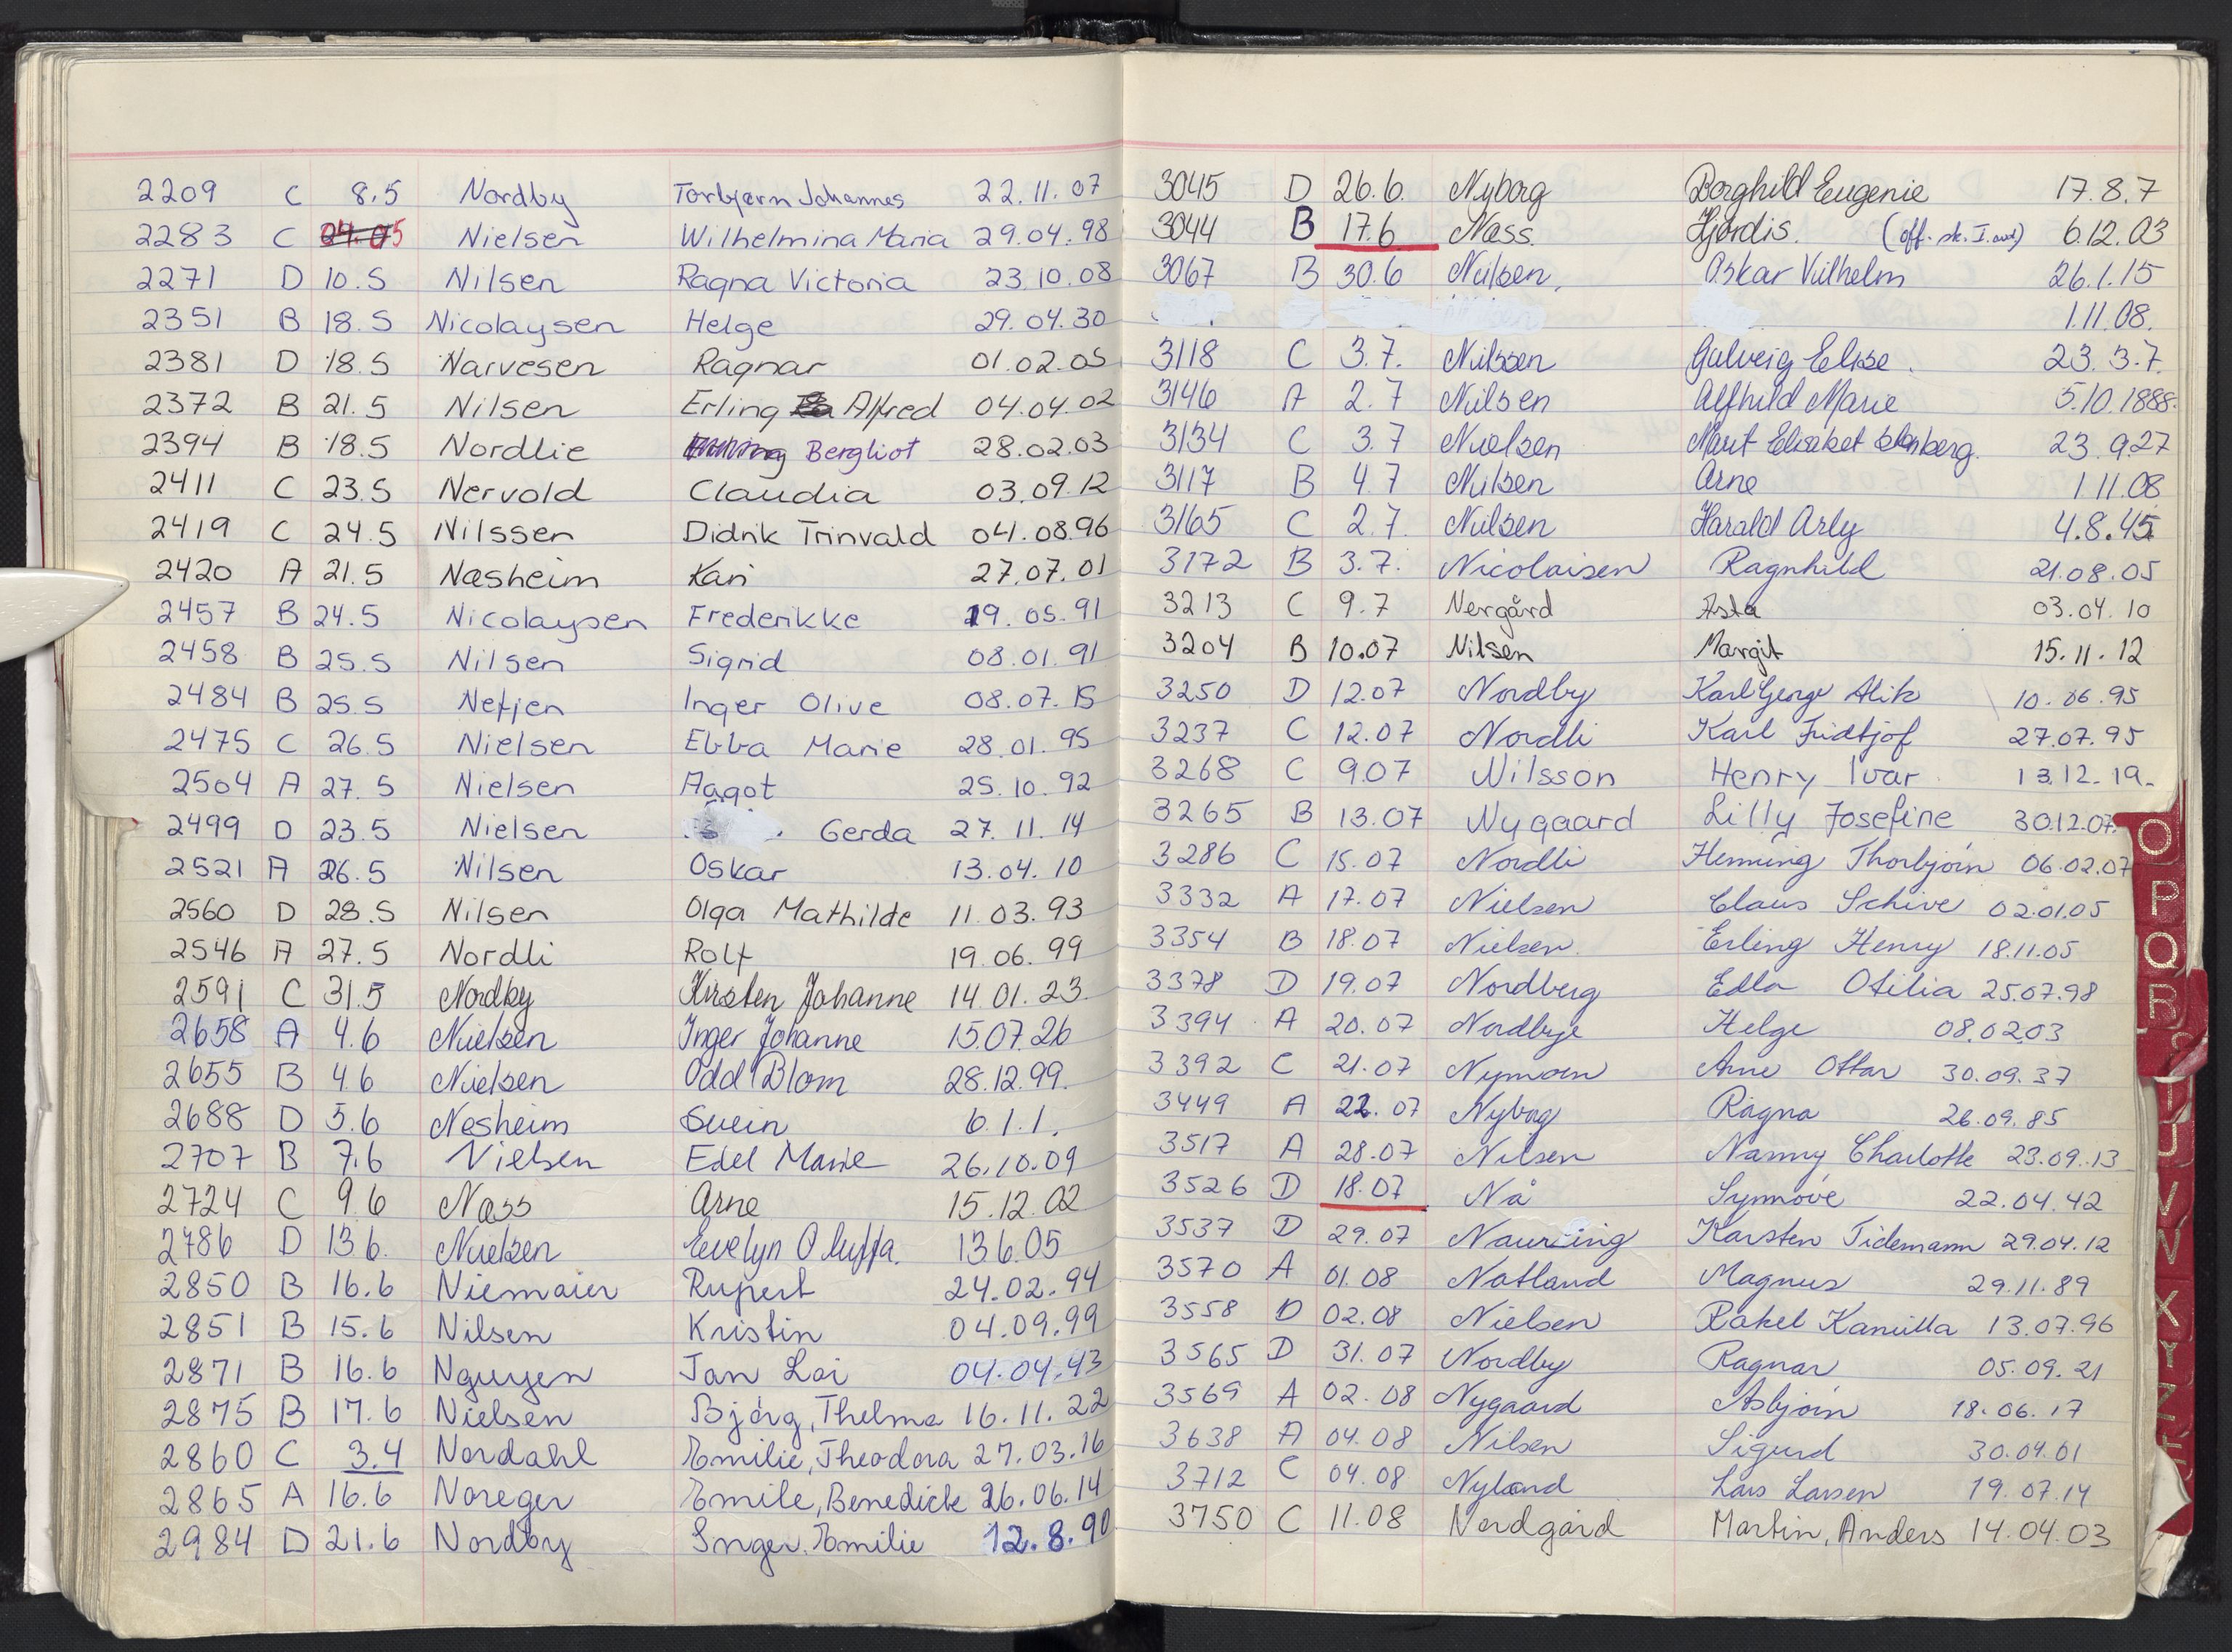 2209 C 8.5 Nordby Torbjørn Johannes 22.11.07
2283 C 24.05 Nielsen Wilhelmina Maria 29.04.98
2271 D 10.5 Nilsen Ragna Victoria 23.10.08
2351 B 18.5 Nicolaysen Helge 29.04.30
2381 D 18.5 Narvesen Ragnar 01.02.05
2372 B 21.5 Nilsen Erling Alfred 04.04.02
2394 B 18.5 Nordlie Bergliot 28.02.03
2411 C 23.5 Nervold Claudia 03.09.12
2419 C 24.5 Nilssen Didrik Trinvald 04.08.96
2420 A 21.5 Næsheim Kari 27.07.01
2457 B 24.5 Nicolaysen Frederikke 19.05.91
2458 B 25.5 Nilsen Sigrid 08.01.91
2484 B 25.5 Netjen Inger Olive 08.07.15
2475 C 26.5 Nielsen Ebba Marie 28.01.95
2504 A 27.5 Nielsen Aagot 25.10.92
2499 D 23.5 Nielsen Gerda 27.11.14
2521 A 26.5 Nilsen Oskar 13.04.10
2560 D 28.5 Nilsen Olga Mathilde 11.03.93
2546 A 27.5 Nordli Rolf 19.06.99
2591 C 31.5 Nordby Kirsten Johanne 14.01.23
2658 A 4.6 Nielsen Inger Johanne 15.07.26
2655 B 4.6 Nielsen Odd Blom 28.12.99.
2688 D 5.6 Nesheim Svein 6.1.1.
2707 B 7.6 Nielsen Edel Marie 26.10.09
2724 C 9.6 Næss Arne 15.12.02
2786 D 13.6. Nielsen Evelyn Oluffa. 13.6.05
2850 B 16.6 Niemaier Rupert 24.02.94
2851 B 15.6 Nilsen Kristin 04.09.99
2871 B 16.6 Nguyen Jan Loi 04.04.43
2875 B 17.6 Nielsen Bjørg, Thelma 16.11.22
2860 C 3.4 Nordahl Emilie, Theodora 27.03.16
2865 A 16.6 Noreger Emile, Benedicte 26.06.14
2984 D 21.6 Nordby Inger Emilie 12.8.90
3045 D 26.6. Nyborg Borghild Eugenie 17.8.7
3044 B 17.6 Næss. Hjørdis. (off. sk. I. avd) 6.12.03
3067 B 30.6 Nilsen, Oskar Vilhelm 26.1.15
1.11.08.
3118 C 3.7. Nilssen Gulveig Elise. 23.3.7.
3146 A 2.7 Nilsen Alfhild Marie 5.10.1888.
3134 C 3.7 Nielsen Marit Elisabet 23.9.27
3117 B 4.7 Nilsen Arne 1.11.08
3165 C 2.7. Nilsen Harald Arly 4.8.45
3172 B 3.7. Nicolaisen Ragnhild 21.08.05
3213 C 9.7 Nergård Asta 03.04.10
3204 B 10.07 Nilsen Margit 15.11.12
3250 D 12.07 Nordby Karl George Alik 10.06.95
3237 C 12.07 Nordli Karl Fridtjof 27.07.95
3268 C 9.07 Nilsson Henry Ivar 13.12.19.
3265 B 13.07 Nygaard Lilly Josefine 30.12.07.
3286 C 15.07 Nordli Henning Thorbjørn 06.02.07
3332 A 17.07 Nielsen Claus Schive 02.01.05
3354 B 18.07 Nielsen Erling Henry 18.11.05
3378 D 19.07 Nordberg Edla Otilia 25.07.98
3394 A 20.07 Nordbye Helge 08.02.03
3392 C 21.07 Nymoen Arne Ottar 30.09.37
3449 A 22.07 Nyborg Ragna 26.09.85
3517 A 28.07 Nilsen Nanny Charlotte 23.09.13
3526 D 18.07 Nå Synnøve 22.04.42
3537 D 29.07 Nauring Karsten Tidemann 29.04.12
3570 A 01.08 Natland Magnus 29.11.89
3558 D 02.08 Nielsen Rakel Kamilla 13.07.96
3565 D 31.07 Nordby Ragnar 05.09.21
3569 A 02.08 Nygaard Asbjørn 18.06.17
3638 A 04.08 Nilsen Sigurd 30.04.01
3712 C 04.08 Nyland Lars Larsen 19.07.14
3750 C 11.08 Nordgård Martin, Anders 14.04.03
O
P
Q
R
U
V
X
Y
Z